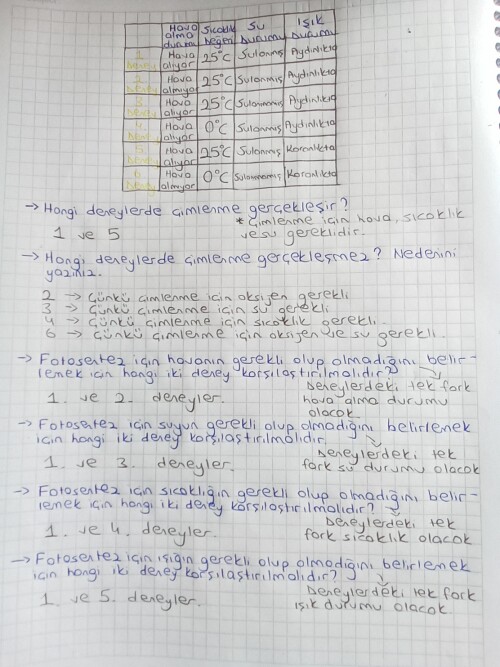 Hava alma durumu Sıcaklık değeri Su Durumu Işık Durumu
1. Deney Hava alıyor 25°C Sulanmış Aydınlıkta
2. Deney Hava almıyor 25°C Sulanmış Aydınlıkta
3. Deney Hava alıyor 25°C Sulanmamış Aydınlıkta
Deney Hava alıyor 0°C Sulanmış Aydınlıkta
5. Deney Hava alıyor 25°C Sulanmış Karanlıkta
6. Deney Hava almıyor 0°C Sulanmamış Karanlıkta
→ Hangi deneylerde çimlenme gerçekleşir?
1 ve 5
* Çimlenme için hava, sıcaklık
ve su gereklidir.
→ Hangi deneylerde çimlenme gerçekleşmez? Nedenini
yazınız.
2 → Çünkü çimlenme için oksijen gerekli
3 → Çünkü çimlenme için su gerekli
4 → Çünkü çimlenme için sıcaklık gerekli.
6 → Çünkü çimlenme için oksijen ve su gerekli.
→ Fotosentez için havanın gerekli olup olmadığını belir-
lemek için hangi iki deney karşılaştırılmalıdır?
1. ve 2. deneyler.
Deneylerdeki tek fark
hava alma durumu
olacak.
→ Fotosentez için suyun gerekli olup olmadığını belirlemek
için hangi iki deney karşılaştırılmalıdır.
1. ve 3. deneyler.
Deneylerdeki tek
fark su durumu olacak
→ Fotosentez için sıcaklığın gerekli olup olmadığını belir-
lemek için hangi iki deney karşılaştırılmalıdır?
1. ve 4. deneyler.
Deneylerdeki tek
fark sıcaklık olacak
→ Fotosentez için ışığın gerekli olup olmadığını belirlemek
için hangi iki deney karşılaştırılmalıdır?
1. ve 5. deneyler.
Deneylerdeki tek fark
ışık durumu olacak.